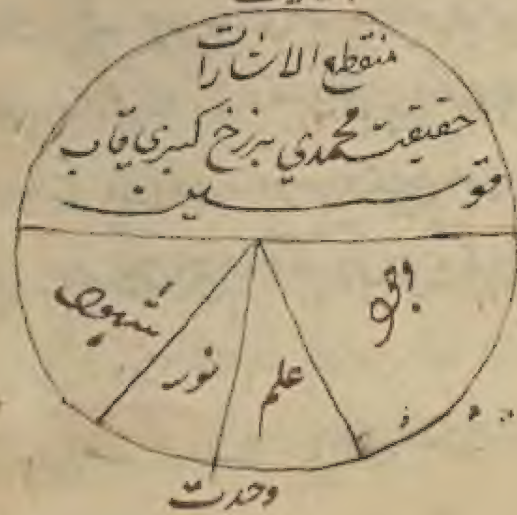 منقطع الاشارات
حقیقت محمدي برزخ کبري قاب
قوسین
وجود
علم
نور
شهود
وحدت